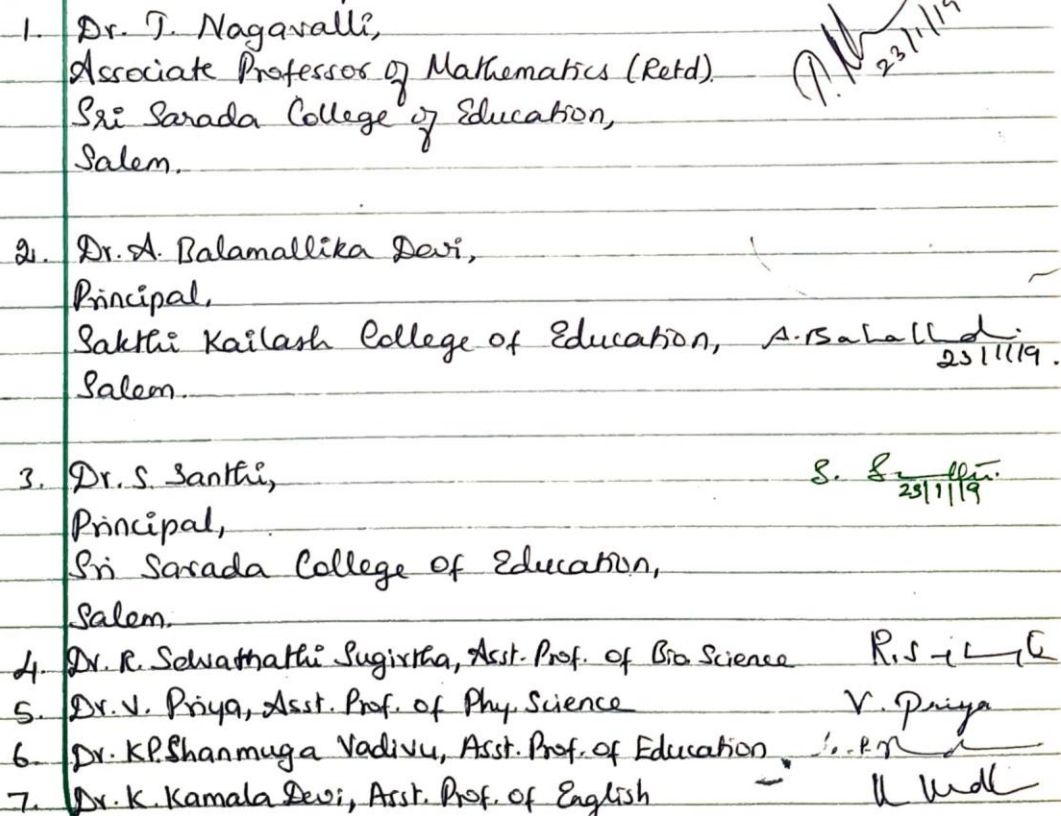 1. Dr. T. Nagavalli,
23/1/19
Associate Professor of Mathematics (Retd).
Sri Sarada College of Education,
Salem.
2. Dr. A. Balamallika Devi,
Principal,
Sakthi Kailash College of Education,
23/1/19.
Salem.
3. Dr. S. Santhi, S.
23/1/19
Principal,
Sri Sarada College of Education,
Salem.
4. Dr. R. Selvathathi Sugirtha, Asst. Prof. of Bio Science
5. Dr. V. Priya, Asst. Prof. of Phy. Science V. Priya
6. Dr. KP. Shanmuga Vadivu, Asst. Prof. of Education
7. Dr. K. Kamala Devi, Asst. Prof. of English